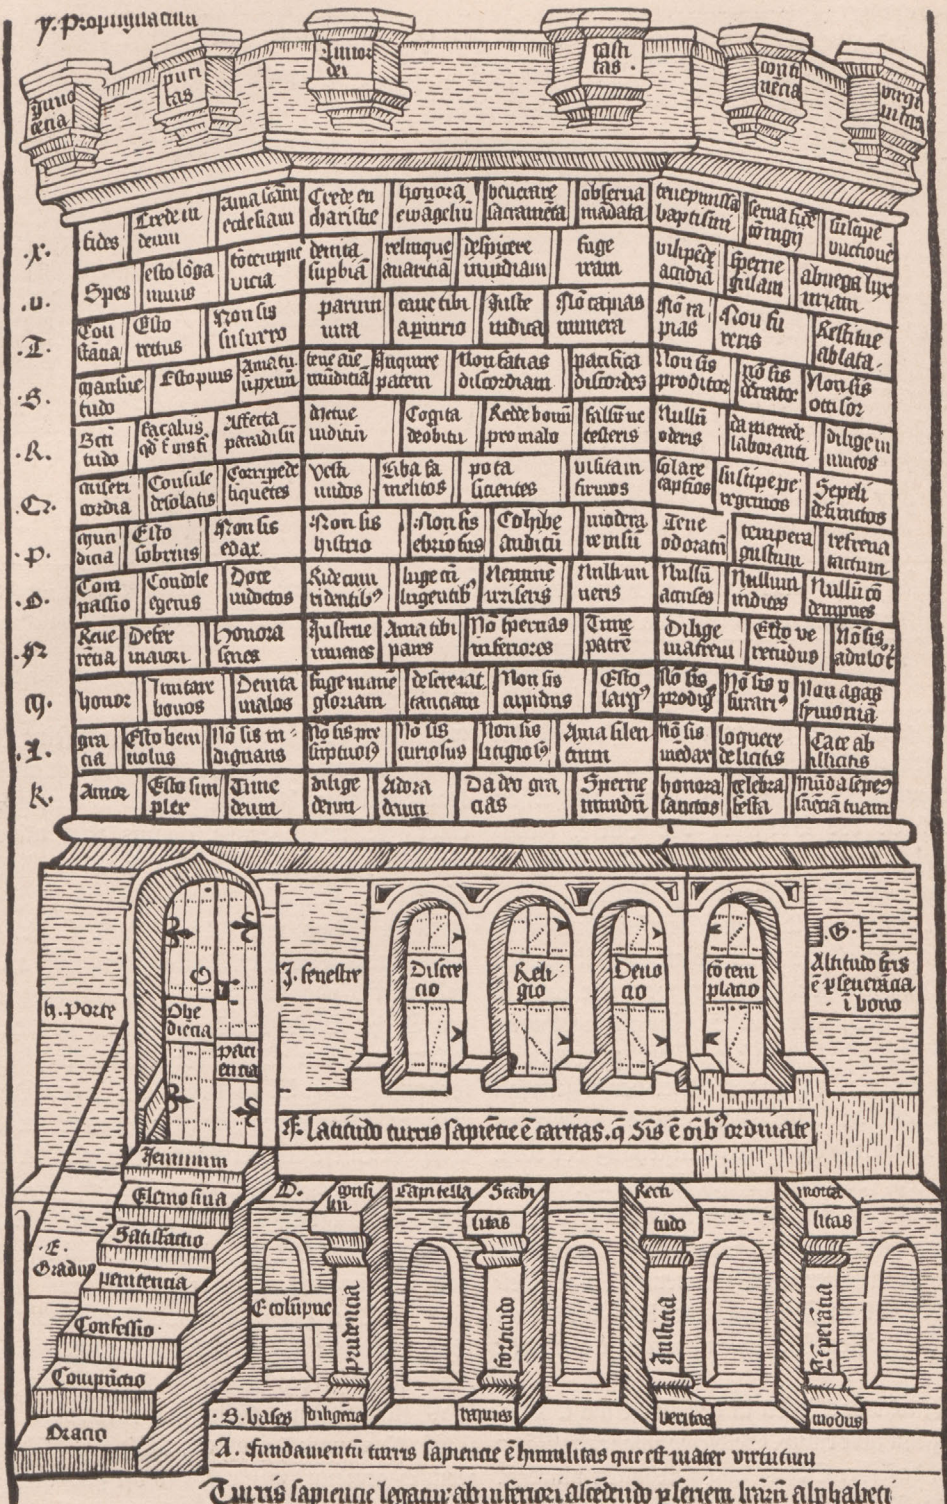 y. Propugnacula
Inno
cēcia
puri
tas
timor
dei
casti
tas.
conti
nēcia
virgi
nitas
.X. fides Crede in deum Ama scām ecclesiam Crede eu charistie honora ewāgeliū venerare sacramēta observa mādata tene punissā baptismi serva fidē cōiugij
.v. Spes esto lōga nimis cōtempne vicia devita supbiā relinque avaritiā despicere invidiam fuge iram vilipēde accidiā sperne gulam abnega lux uriam
.T. Con stācia Esto rectus Non sis susurro parum iura cave tibi a piurio Juste iudica Nō capias munera Nō ra pias Nou fu reris Restitue ablata.
.S. mansue tudo Esto pius Ama tu ū pxim̄ tene aīe mūdiciā Inquire pacem Non facias discordiam pacifica discordes Non sis proditor nō sis detractor Non sis occisor
.R. Bcī tudo Affecta paradisū Metue iudiciū Cogita de obitu Redde bonū pro malo falsū ne testeris Nullū oderis da mercede laboranti dilige in imicos
.Q. miseri cordia Consule desolatis Corripe de liquētes Vesti nudos Ciba fa melicos pota sicientes visita in firmos solare captivos suscipe pe regrinos Sepeli defunctos
.P. mun dicia Esto sobrius Non sis edax Non sis histrio Non sis ebriosus Cohibe auditū modera re visū Tene odoratū tempera gustum refrena tactum
.O. Com passio Condole egenis Doce indoctos Ride cum ridentib⁹ luge cū lugentib⁹ Neminē irriseris Nulli in iieris Nullū accuses Nullum iudices Nullū cō dempnes
.N. Reue rētia Defer maiori Honora senes Instrue iuvenes Ama tibi pares Nō spernas inferiores Time patrē Dilige matrem Esto ve recūdus Nō sis adulator
.M. honor Imitare bonos Devita malos fuge inanē gloriam Non sis cupidus Esto larg⁹ Nō sis prodig⁹ Nō sis usurari⁹ Non agas symoniā
.L. gra cia Esto beni volus Nō sis in= dignans Nō sis pre sūptuos⁹ Nō sis curiosus Non sis litigios⁹ Ama silen cium nō sis mēdax loquere de licitis Tace ab illicitis
K. Amor Esto sim plex Time deum dilige deum Adora deum Da deo gra cias Sperne mundū honora sanctos celebra festa Mūda sepe cōsciēciā tuam
h. Porte
Obe
diēcia
paci
encia
J. fenestre
Discre
cio
Reli=
gio
Devo
cio
cōtem
placio
.G.
Altitudo tris
ē pseverācia
ī bono
.F. latitudo turris sapiētie ē caritas. q̄ Sīs ē oīb⁹ ordinate
Jeiunium
Elemosina
Satisfactio
penitencia
Confessio.
Compūctio
Oracio
.E.
Gradus
.D.
consi
liū
Capitella
Stabi
litas
Recti
tudo
morta
litas
C colūpne
prudencia
fortitudo
Justicia
Tēperācia
.B. bases
diligēcia
requies
veritas
modus
A. fundamentū turris sapiencie ē humilitas que est mater virtutum
Turris sapiencie legatur ab inferiori ascēdendo p seriem lrārū alphabeti